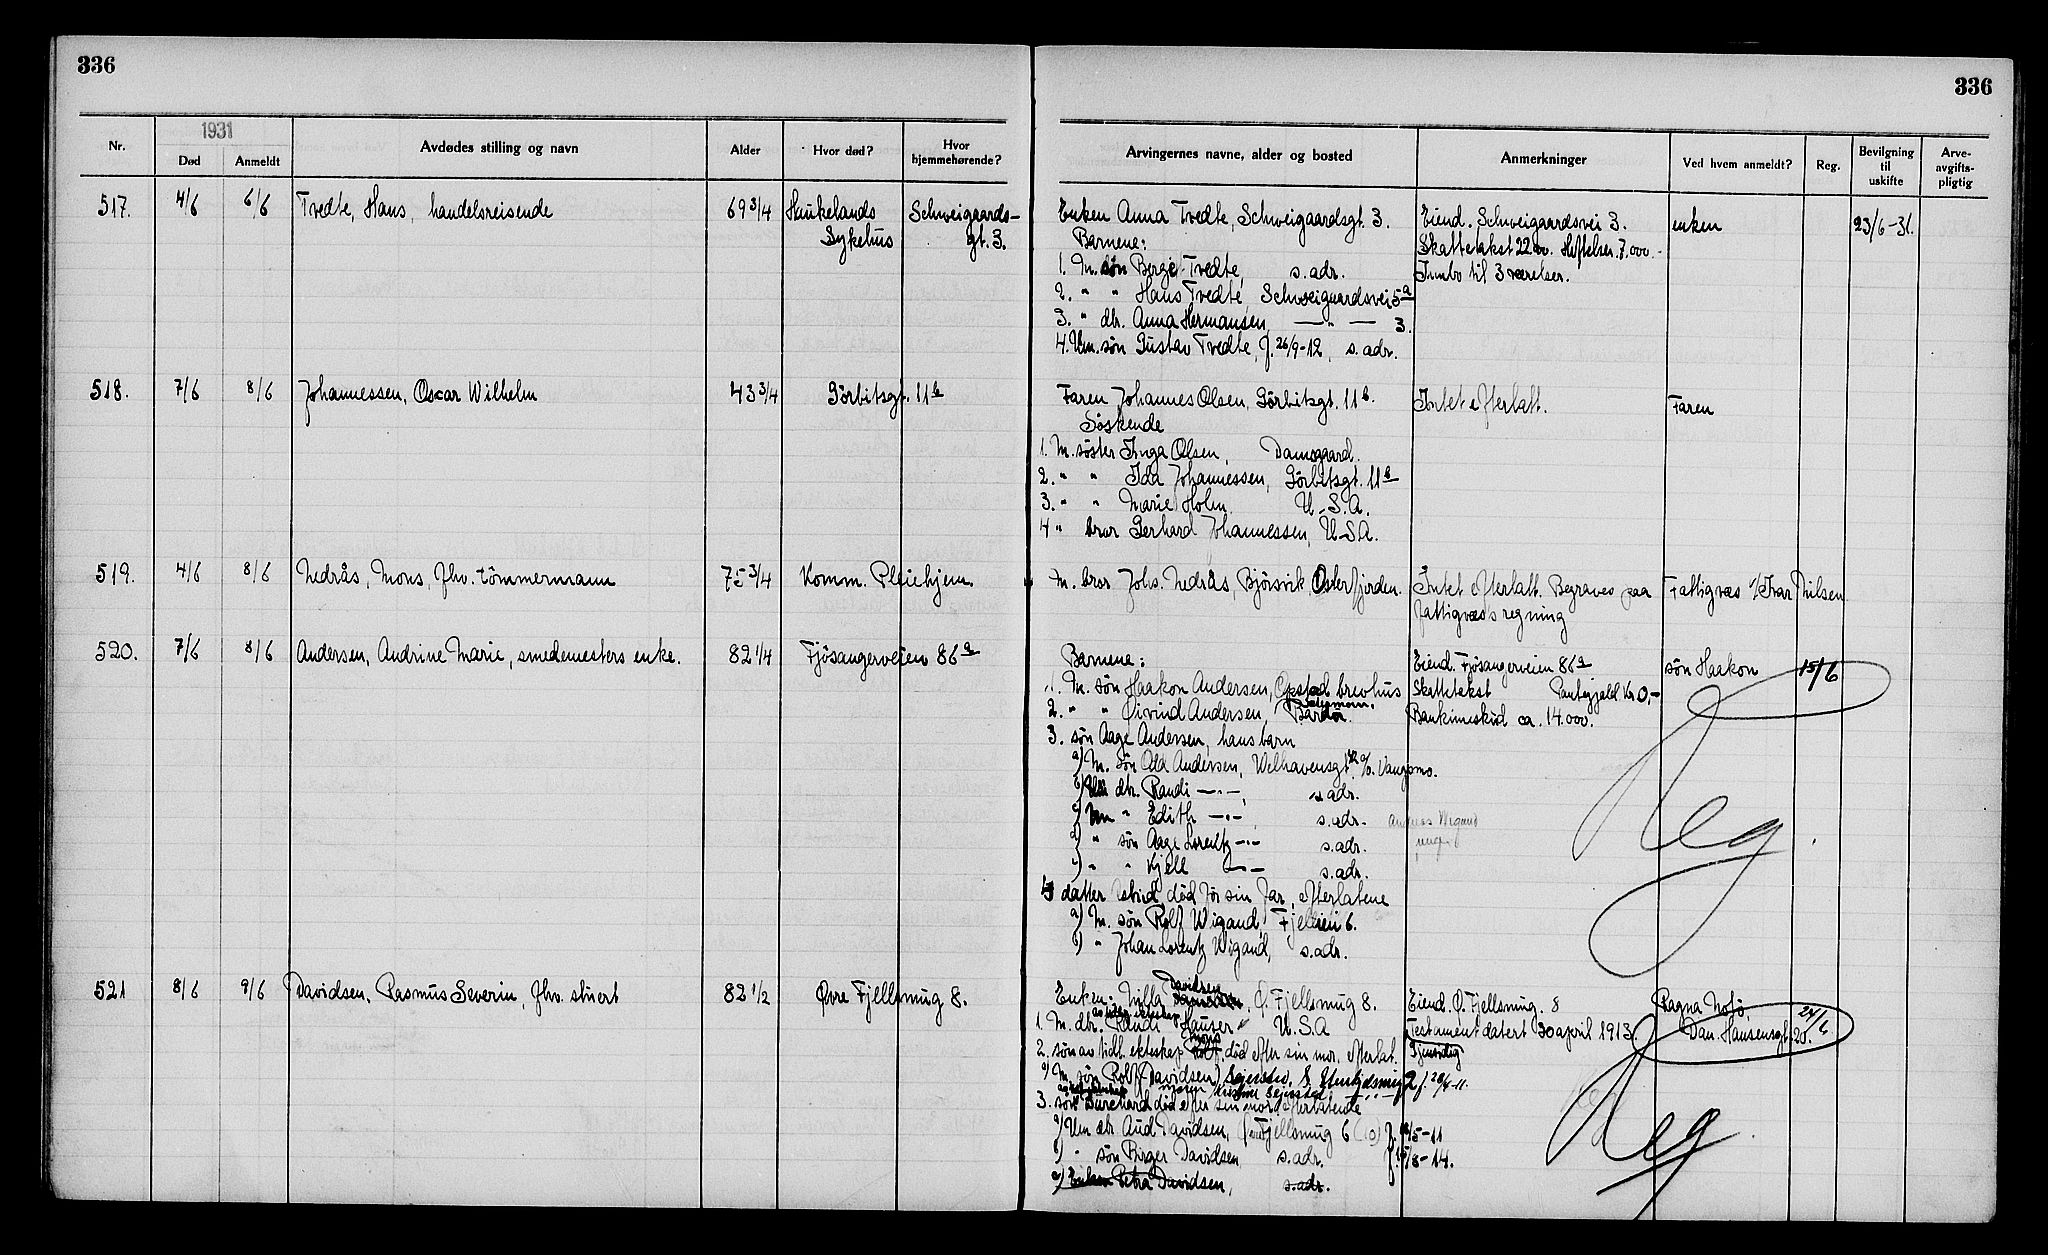 336
336
Nr.
1931
Død
Anmeldt
Avdødes stilling og navn
Alder
Hvor død?
Hvor hjemmehørende?
Arvingernes navne, alder og bosted
Anmerkninger
Ved hvem anmeldt?
Reg.
Bevilgning til uskifte
Arve-avgifts-pligtig
517. 4/6 6/6 Tvedte, Hans, handelsreisende 69 3/4 Haukelands Schweigaards-
Sykehus gt. 3.
Enken Anna Tvedte, Schweigaardsgt. 3.
Barnene:
1. M. søn Berge Tvedte, s. adr.
2. " " Hans Tvedte, Schweigaardsvei 5a
3. " dtr. Anna Hermansen, — " — 3.
4. Um. søn Gustav Tvedte, f. 26/9-12, s. adr.
Eiend. Schweigaardsvei 3.
Skattetakst 22.00. Heftelser. 7.000.-
Innbo til 3 værelser.
enken
23/6-31.
518. 7/6 8/6 Johannessen, Oscar Wilhelm 43 3/4 Görbitsgt. 11b
Faren Johannes Olsen, Görbitsgt. 11b.
Søskende
1. M. søster Inga Olsen, Damsgaard.
2. " " Ida Johannessen, Görbitsgt. 11b
3. " " Marie Holm. U.S.A.
4 " bror Gerhard Johannessen, U.S.A.
Intet efterlatt.
Faren
519. 4/6 8/6 Nedrås, Mons, fhv. tömmermann 75 3/4 Komm. Pleiehjem
M. bror Johs. Nedrås, Bjørsvik Osterfjorden.
Intet efterlatt. Begraves paa
fattigvæs's regning
Fattigvæs v/Ivar Nilsen
520. 7/6 8/6 Andersen, Andrine Marie, smedemesters enke. 82 1/4 Fjösangerveien 86a
Barnene:
1. M. søn Haakon Andersen, Opstad brevhus
2. " " Öivind Andersen, Bardø.
3. søn Aage Andersen, hans barn
a) M. søn Odd Andersen, Welhavensgt. Vangsmo.
b) dtr. Randi — " —, s. adr.
c) Um " Edith — " — s. adr.
d) " søn Aage Lorentz — " — s. adr.
e) " " Kjell — " — s. adr.
4 datter død før sin far, efterlatene
a) M. søn Rolf Wigand, Fjellveien 6.
b) " Johan Lorentz Wigand, s. adr.
Eiend. Fjösangerveien 86a
Skattetakst Pantegjeld Kr 0,-
Bankinnskud ca. 14.000.
søn Haakon
15/6
Reg.
521 8/6 9/6 Davidsen, Rasmus Severin, fhv. stuert 82 1/2 Øvre Fjellsmug 8.
Davidsen
Enken: Ö. Fjellsmug 8.
1. M. dtr. Randi Hauser U.S.A
2. søn av tidl. ekteskap død efter sin mor, efterlat.
a) M. søn Rolf (Davidsen)
3. søn Burchard død efter sin mor, efterlatende
a) Um dtr Aud Davidsen, Fjellsmug 6 f. 5-11
b) " søn Birger Davidsen s. adr. f. 8-14.
c) Enken Petra Davidsen, s. adr.
Eiend. Ö. Fjellsmug. 8
Testament datert 30 april 1913.
Gjensidig
Ragna
Dan. Hansensgt. 20.
24/6
Reg